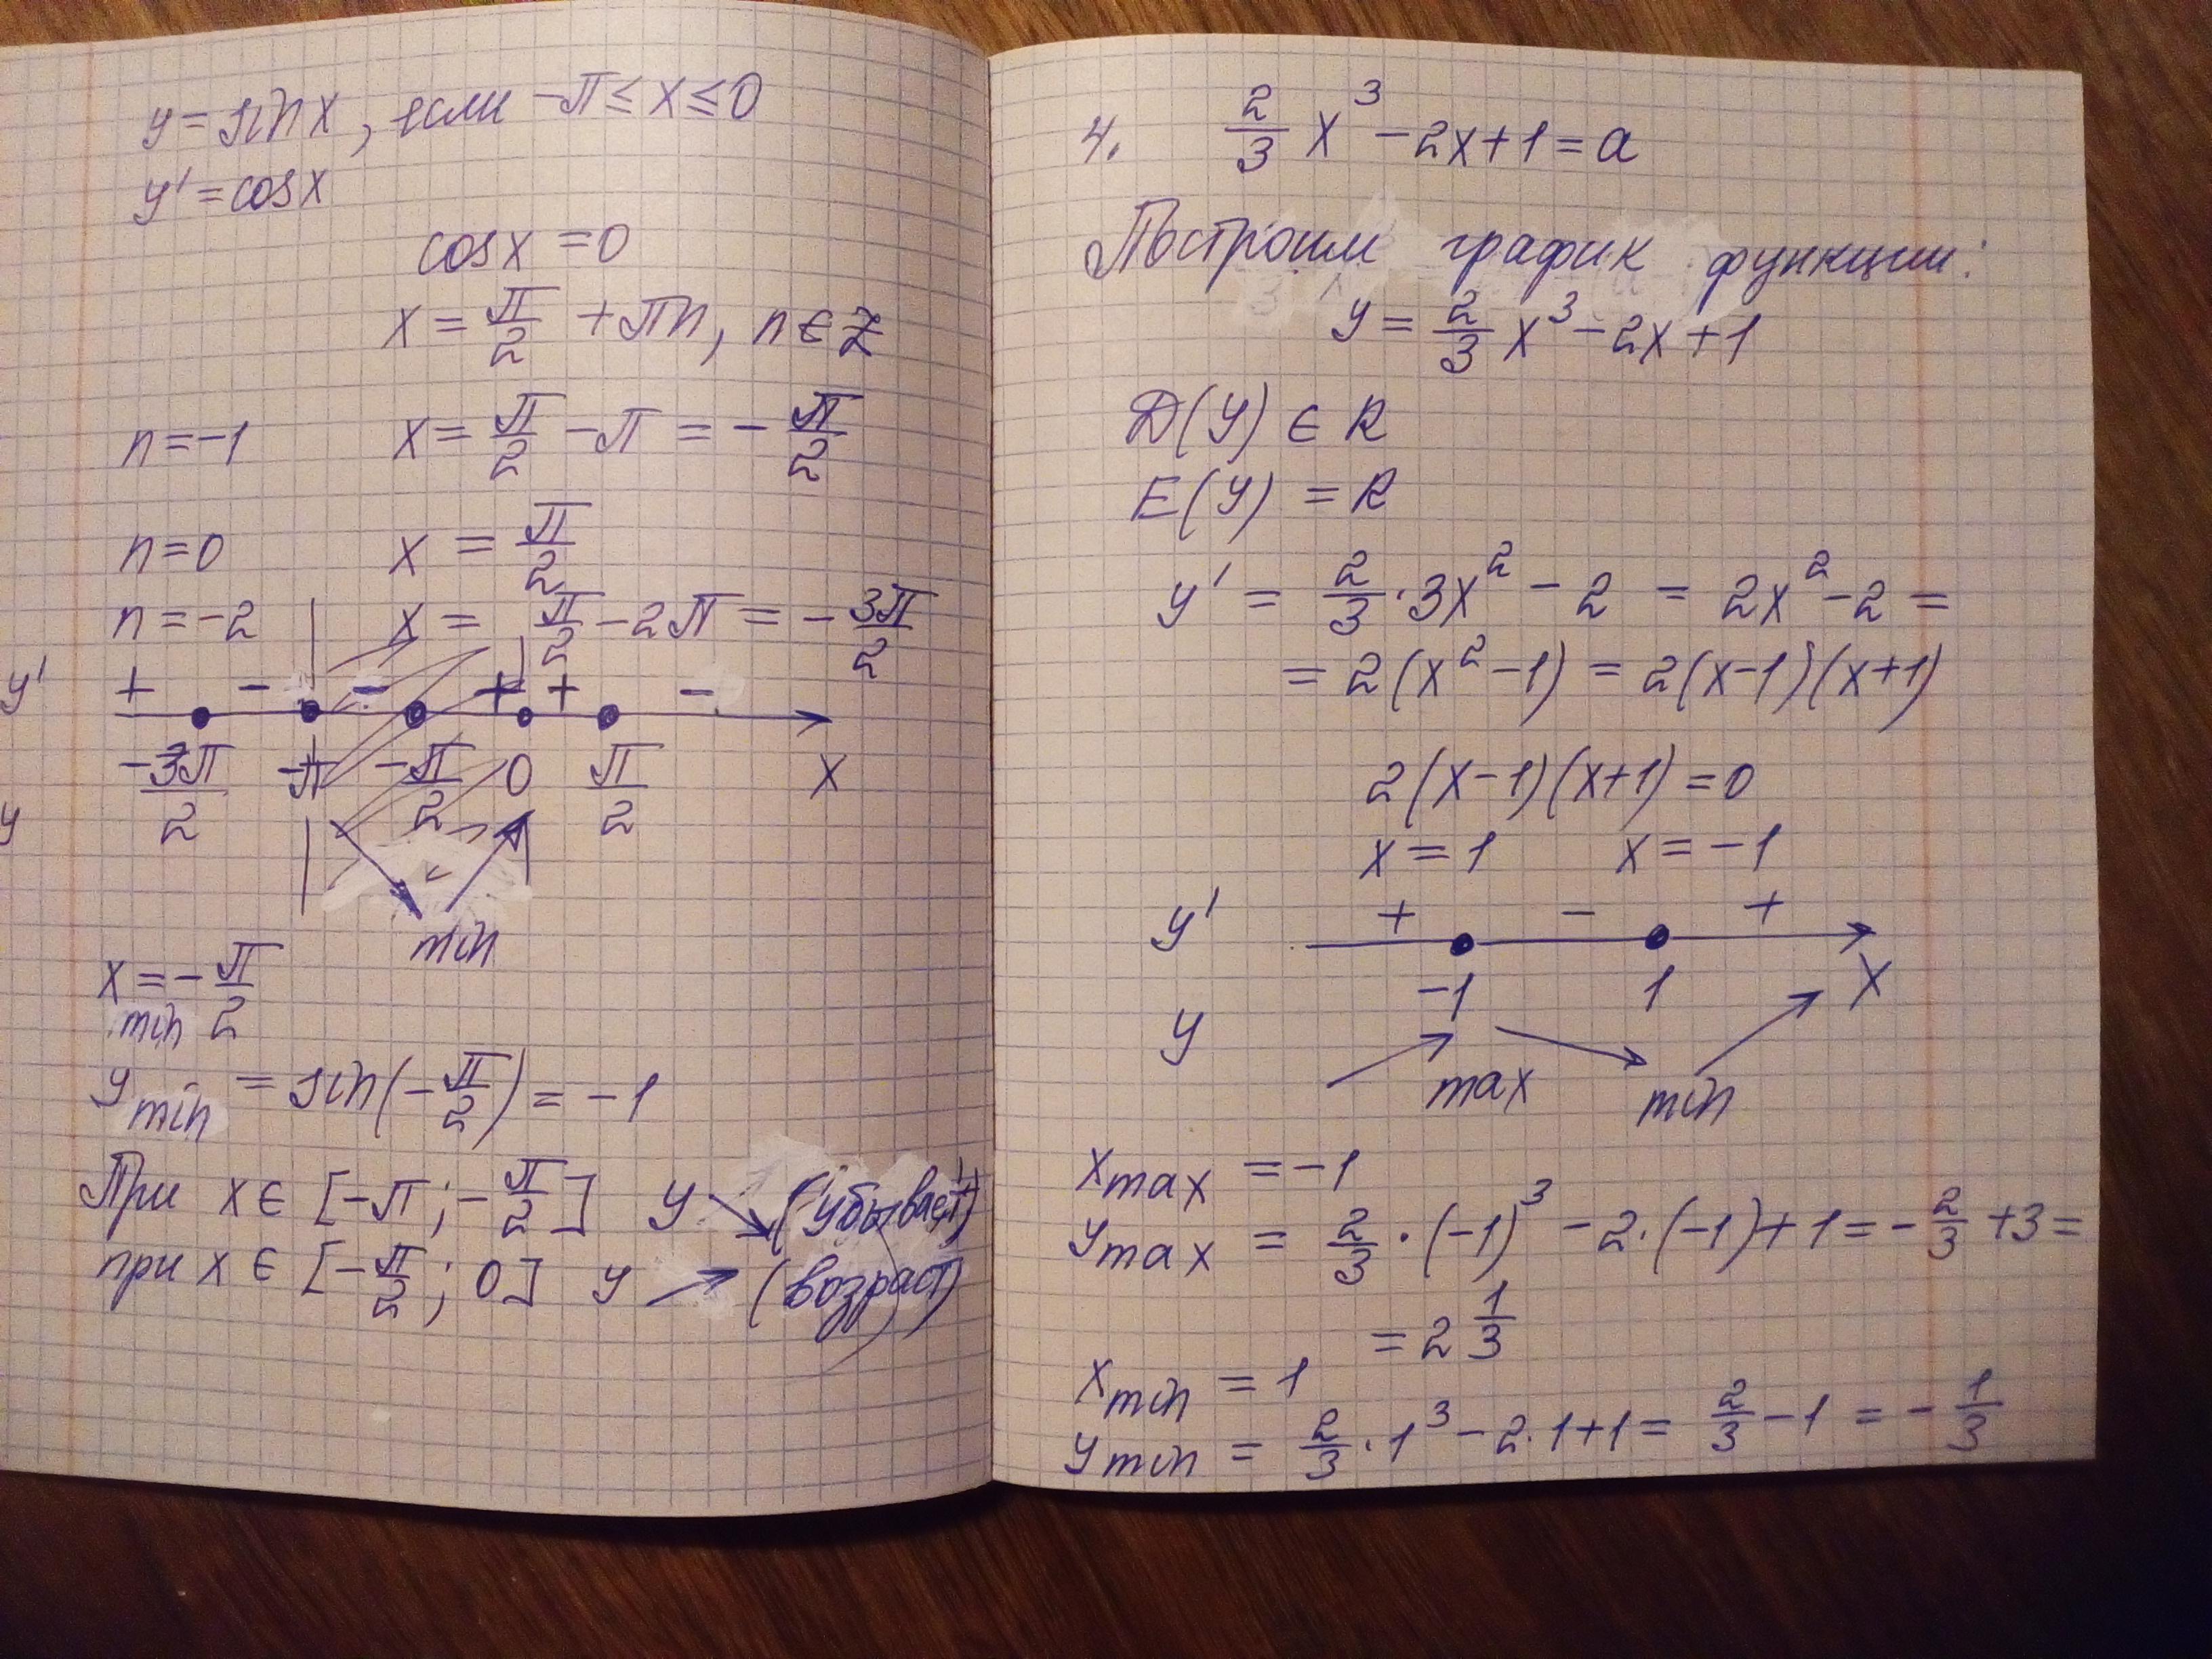 y = sin x, если -π ≤ x ≤ 0
y' = cos x
cos x = 0
x = π/2 + πn, n ∈ Z
n = -1 x = π/2 - π = - π/2
n = 0 x = π/2
n = -2 x = π/2 - 2π = - 3π/2
y' + - - + + -
-3π/2 -π -π/2 0 π/2 x
y
min
x min = - π/2
y min = sin(- π/2) = -1
При x ∈ [-π; - π/2] y ↘ (убывает)
при x ∈ [- π/2; 0] y ↗ (возраст)
4. 2/3 x³ - 2x + 1 = a
Построим график функции:
y = 2/3 x³ - 2x + 1
D(y) ∈ R
E(y) = R
y' = 2/3 · 3x² - 2 = 2x² - 2 =
= 2(x² - 1) = 2(x-1)(x+1)
2(x-1)(x+1) = 0
x = 1 x = -1
y' + - +
-1 1 x
y
max min
x max = -1
y max = 2/3 · (-1)³ - 2·(-1) + 1 = - 2/3 + 3 =
= 2 1/3
x min = 1
y min = 2/3 · 1³ - 2·1 + 1 = 2/3 - 1 = - 1/3